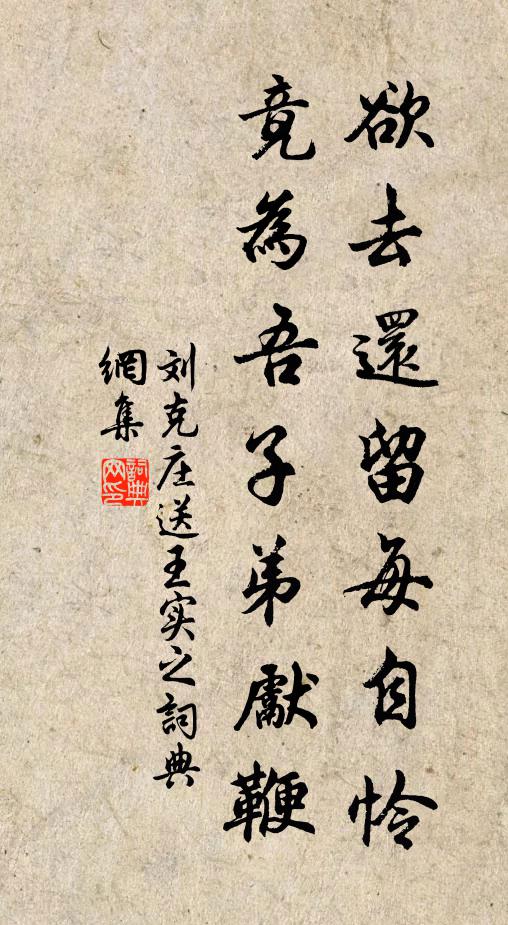 欲去還留每自怜
竟為吾子弟獻鞭
刘克庄送王实之詞典
網集
詞典网印